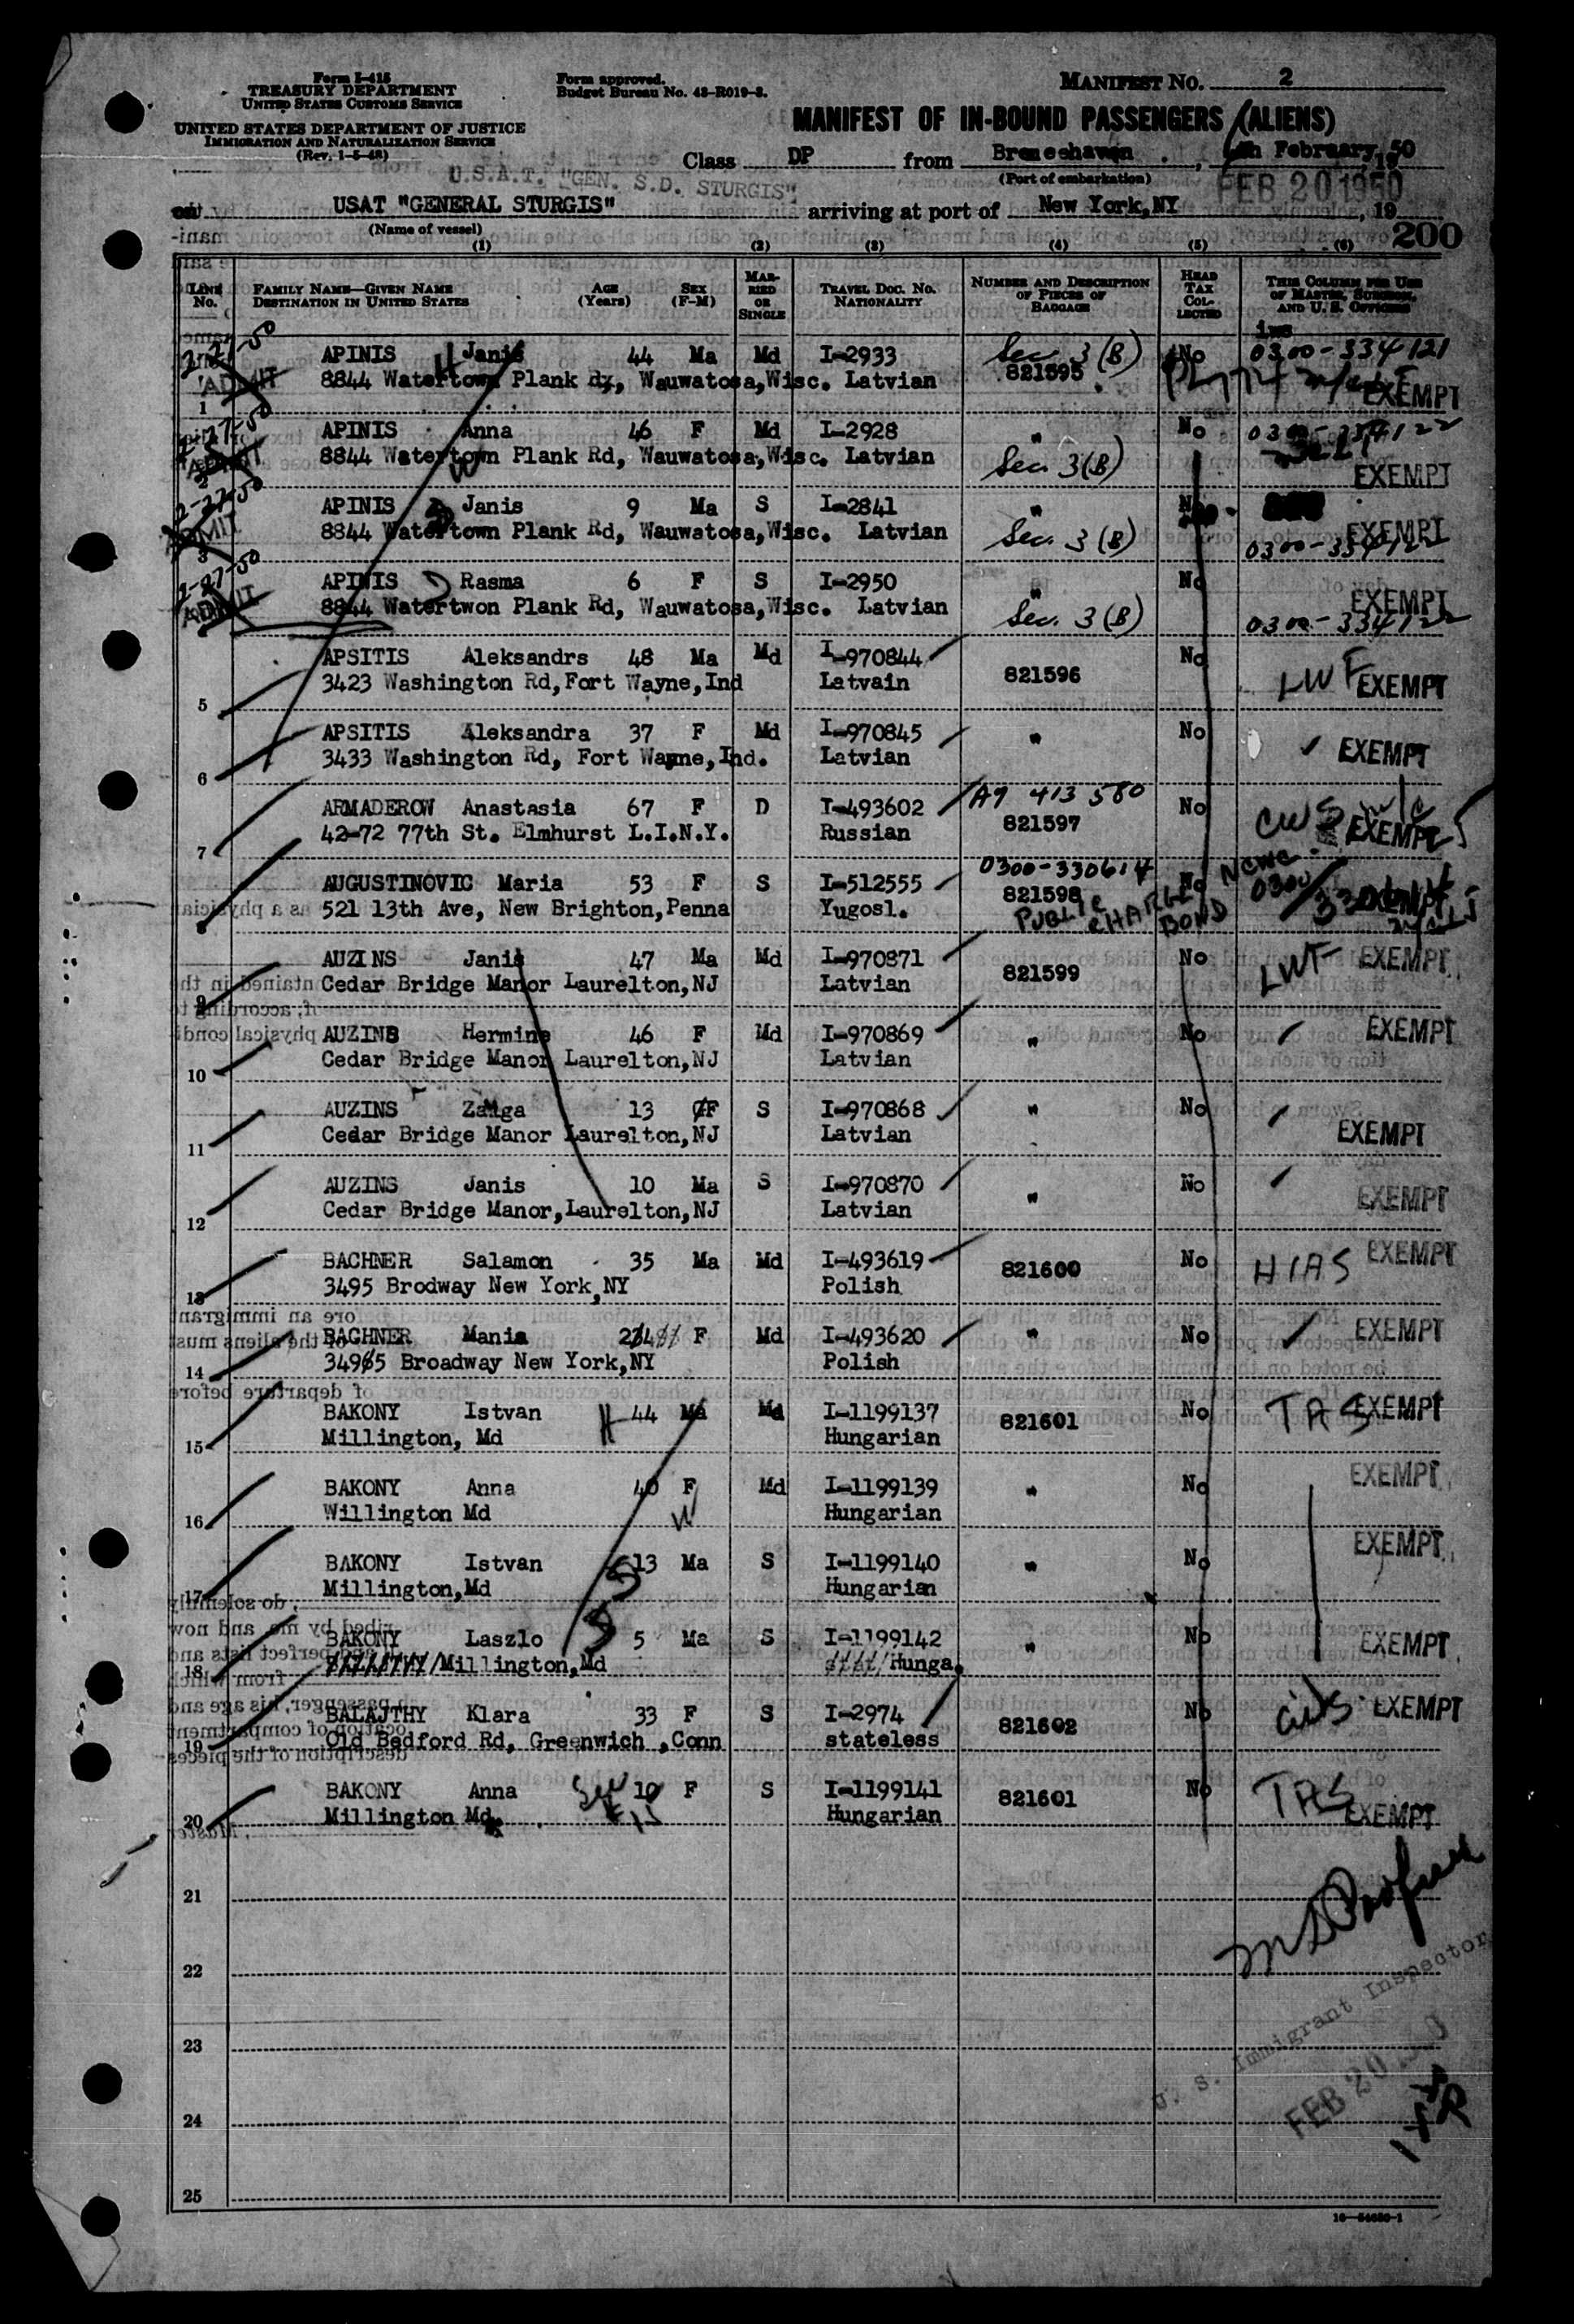 Form I-415
TREASURY DEPARTMENT
UNITED STATES CUSTOMS SERVICE
UNITED STATES DEPARTMENT OF JUSTICE
IMMIGRATION AND NATURALIZATION SERVICE
(Rev. 1-5-48)
Form approved.
Budget Bureau No. 43-R019-3.
MANIFEST NO. 2
MANIFEST OF IN-BOUND PASSENGERS (ALIENS)
Class DP from Bremeshaven, February, 1950
(Port of embarkation)
U.S.A.T. "GEN. S.D. STURGIS"
FEB 20 1950
on USAT "GENERAL STURGIS" arriving at port of New York,NY, 19
(Name of vessel)
200
(1) (2) (3) (4) (5) (6)
LINE No. FAMILY NAME—GIVEN NAME DESTINATION IN UNITED STATES AGE (Years) SEX (F-M) MARRIED OR SINGLE TRAVEL DOC. NO. NATIONALITY NUMBER AND DESCRIPTION OF PIECES OF BAGGAGE HEAD TAX COLLECTED THIS COLUMN FOR USE OF MASTER, SURGEON, AND U. S. OFFICERS
2-27-50 APINIS Janis 44 Ma Md I-2933 Sec 3 (B) No 0300-334121
ADMIT 8844 Watertown Plank Rd, Wauwatosa,Wisc. Latvian 821595 EXEMPT
1
2-27-50 APINIS Anna 46 F Md I-2928 " No 0300-334122
ADMIT 8844 Watertown Plank Rd, Wauwatosa,Wisc. Latvian Sec. 3(B) EXEMPT
2
2-27-50 APINIS Janis 9 Ma S I-2841 "
ADMIT 8844 Watertown Plank Rd, Wauwatosa,Wisc. Latvian Sec. 3 (B) EXEMPT
3 0300-334122
2-27-50 APINIS Rasma 6 F S I-2950 No
ADMIT 8844 Watertwon Plank Rd, Wauwatosa,Wisc. Latvian Sec. 3 (B) EXEMPT
0300-334122
APSITIS Aleksandrs 48 Ma Md I-970844 821596 No LWF
3423 Washington Rd,Fort Wayne,Ind Latvain EXEMPT
5
APSITIS Aleksandra 37 F Md I-970845 " No
3433 Washington Rd, Fort Wayne,Ind. Latvian EXEMPT
6
ARMADEROW Anastasia 67 F D I-493602 A7 413 580 No CWS
42-72 77th St. Elmhurst L.I.N.Y. Russian 821597 EXEMPT
7
0300-330614
AUGUSTINOVIC Maria 53 F S I-512555 821598 No NCWC 0300
521 13th Ave, New Brighton,Penna Yugosl. PUBLIC CHARGE BOND EXEMPT
8
AUZINS Janis 47 Ma Md I-970871 821599 No LWF EXEMPT
Cedar Bridge Manor Laurelton,NJ Latvian
9
AUZINS Hermine 46 F Md I-970869 " No EXEMPT
Cedar Bridge Manor Laurelton,NJ Latvian
10
AUZINS Zaiga 13 F S I-970868 " No
Cedar Bridge Manor Laurelton,NJ Latvian EXEMPT
11
AUZINS Janis 10 Ma S I-970870 " No
Cedar Bridge Manor,Laurelton,NJ Latvian EXEMPT
12
BACHNER Salamon 35 Ma Md I-493619 821600 No HIAS EXEMPT
3495 Brodway New York,NY Polish
13
BACHNER Mania F Md I-493620 " No EXEMPT
3495 Broadway New York,NY Polish
14
BAKONY Istvan H 44 Ma Md I-1199137 821601 No TAS EXEMPT
Millington, Md Hungarian
15
BAKONY Anna 40 F Md I-1199139 " No EXEMPT
Willington Md W Hungarian
16
BAKONY Istvan S 13 Ma S I-1199140 " No EXEMPT
Millington,Md Hungarian
17
BAKONY Laszlo S 5 Ma S I-1199142 " No EXEMPT
Millington,Md Hunga.
18
BALAJTHY Klara 33 F S I-2974 821602 No CWS EXEMPT
Old Bedford Rd, Greenwich ,Conn stateless
19
BAKONY Anna 10 F S I-1199141 821601 No TAS
Millington Md. Hungarian EXEMPT
20
21
22
U. S. Immigrant Inspector
23
FEB 20
24
25